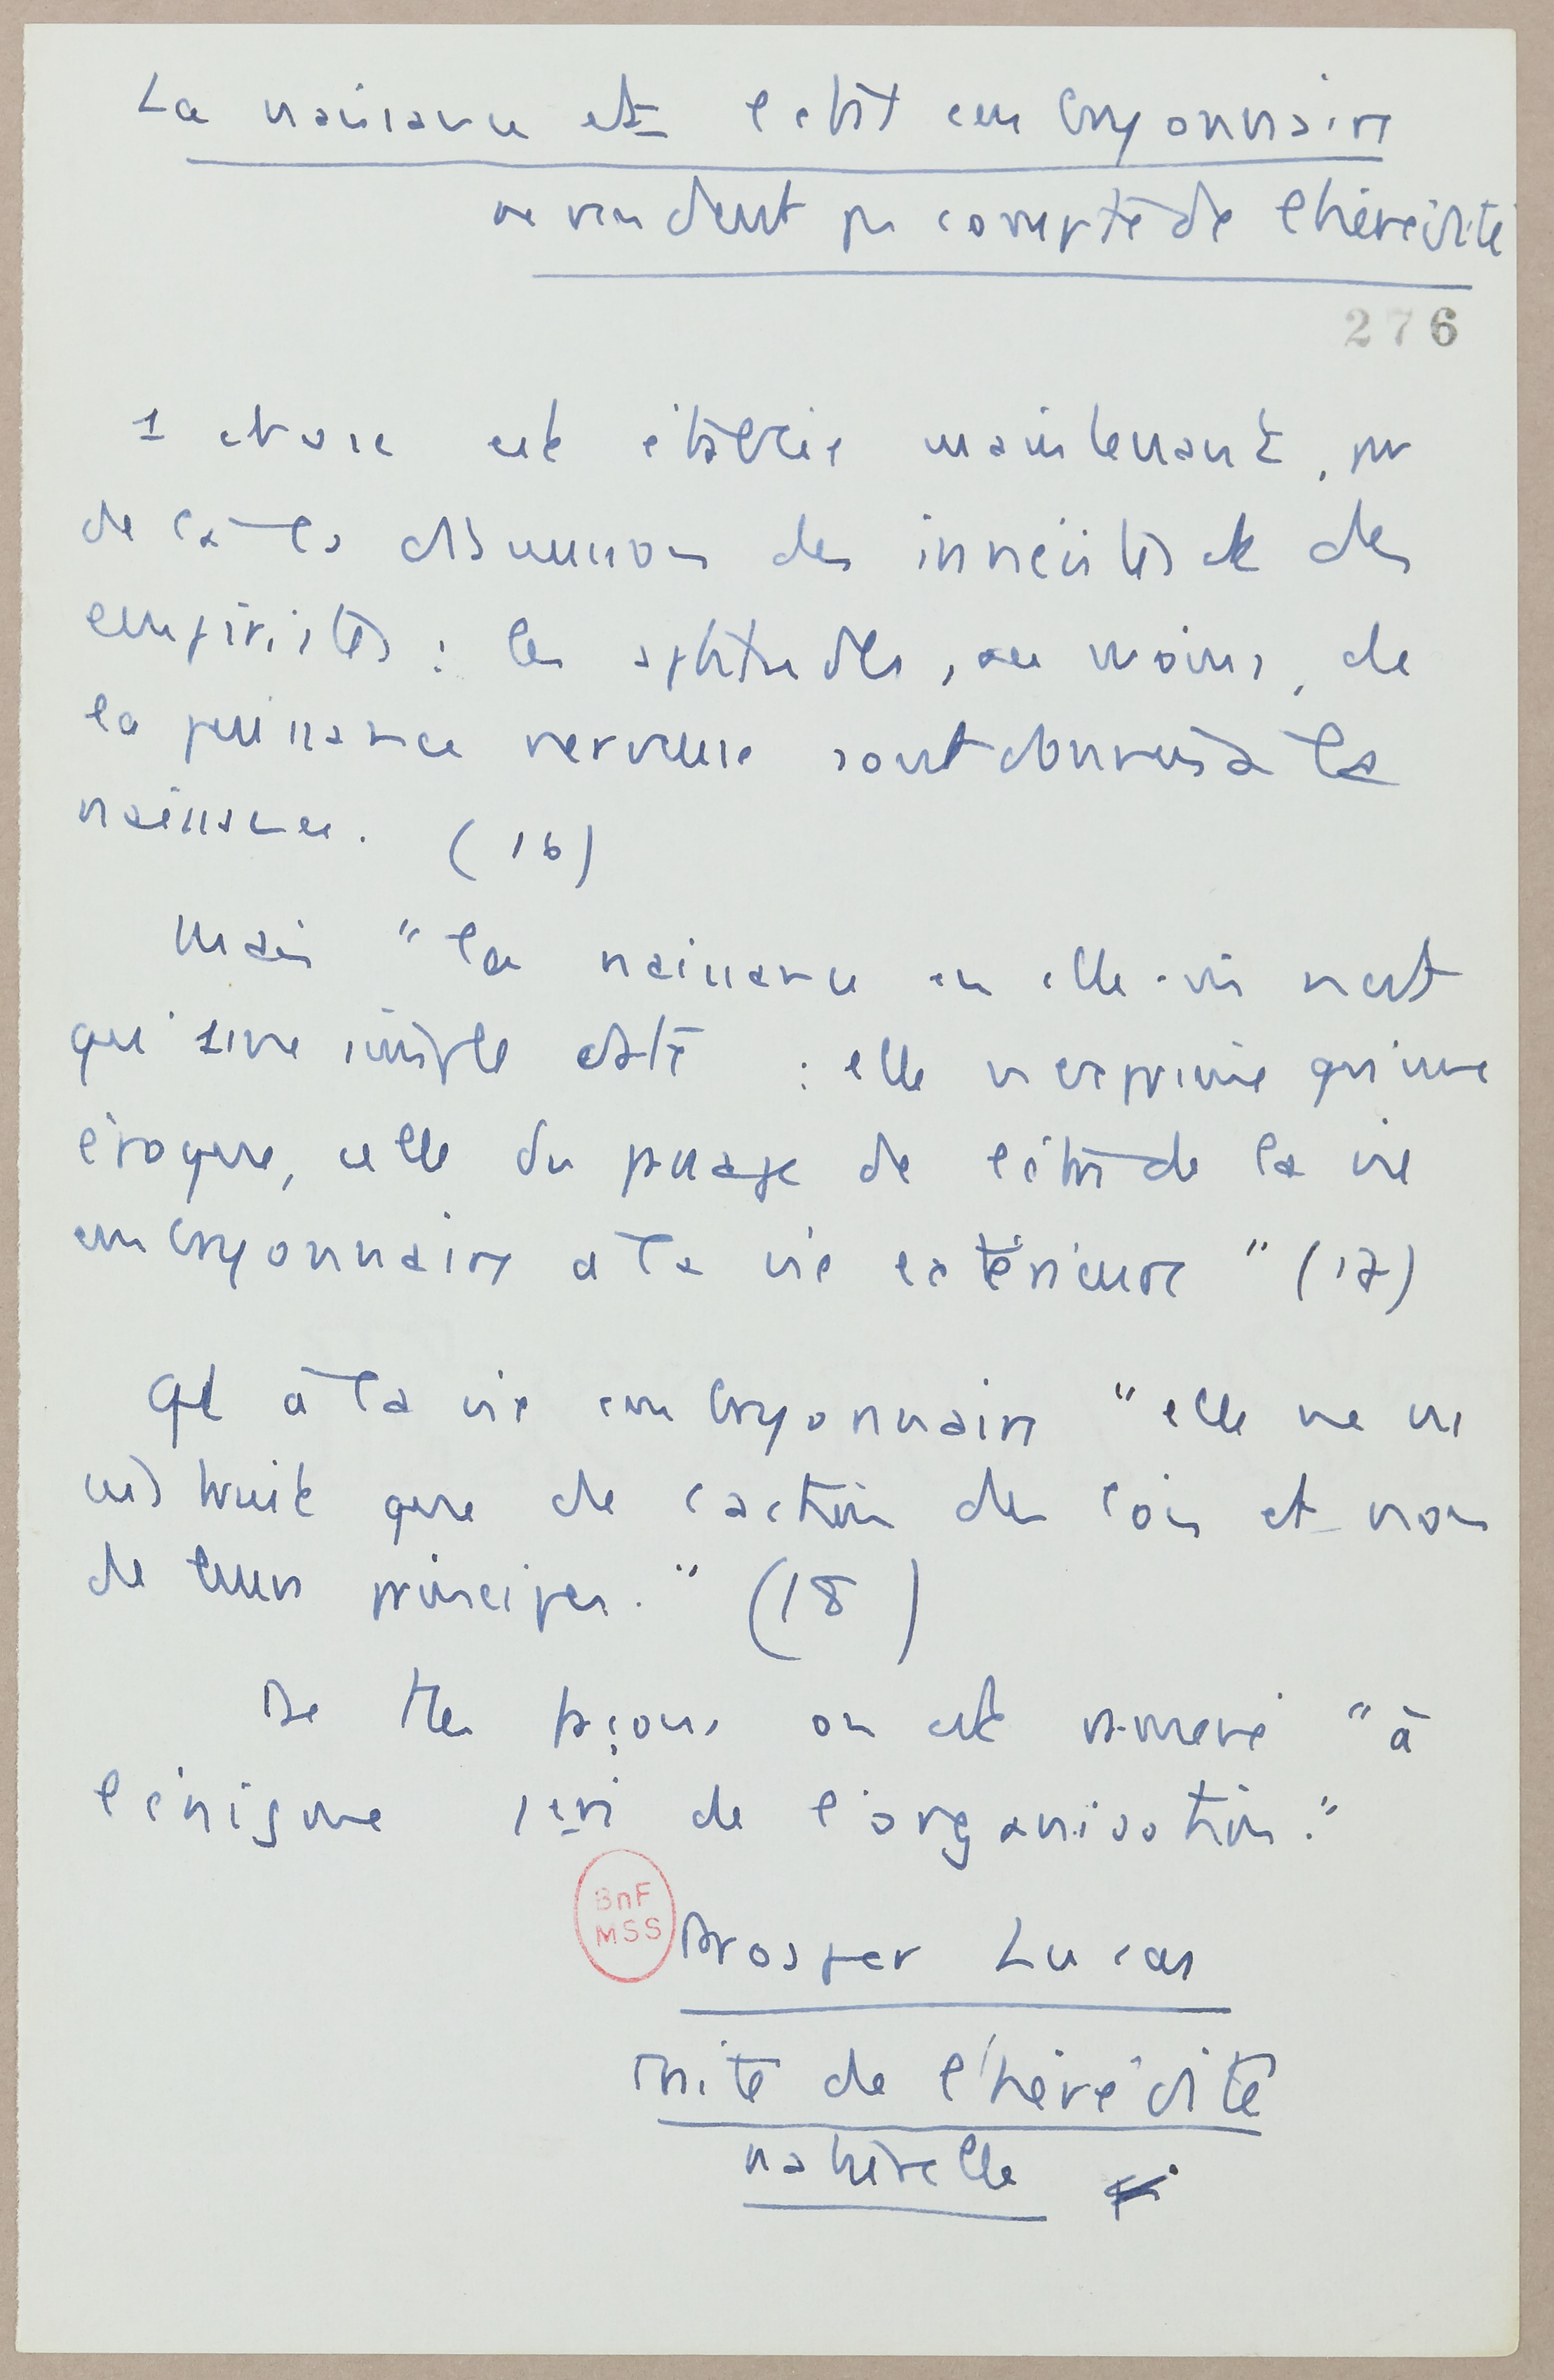 La naissance et l'état embryonnaire
ne rendent pas compte de l'hérédité
276
1 chose est établie maintenant, par
delà les discussions des innéistes et des
empiristes : les aptitudes, au moins, de
la puissance nerveuse sont données à la
naissance. (16)
Mais "la naissance en elle-même n'est
qu'une simple date : elle n'exprime qu'une
époque, celle du passage de l'état de la vie
embryonnaire à la vie extérieure" (17)
Qt à la vie embryonnaire "elle ne
instruit que de l'action des lois et non
de leurs principes." (18)
De ttes façons on est ramené "à
l'énigme de l'organisation."
BnF
MSS
Prosper Lucas
Traité de l'hérédité
naturelle